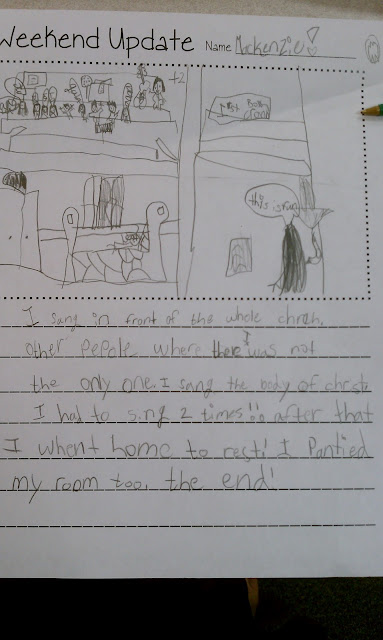 Weekend Update Name Mackenzie!
+2
this is fun
I sang in front of the whole chrch.
other pepole where there I was not
the only one. I sang the body of christ.
I had to sing 2 times!! after that
I whent home to rest! I Pantied
my room too. the end!